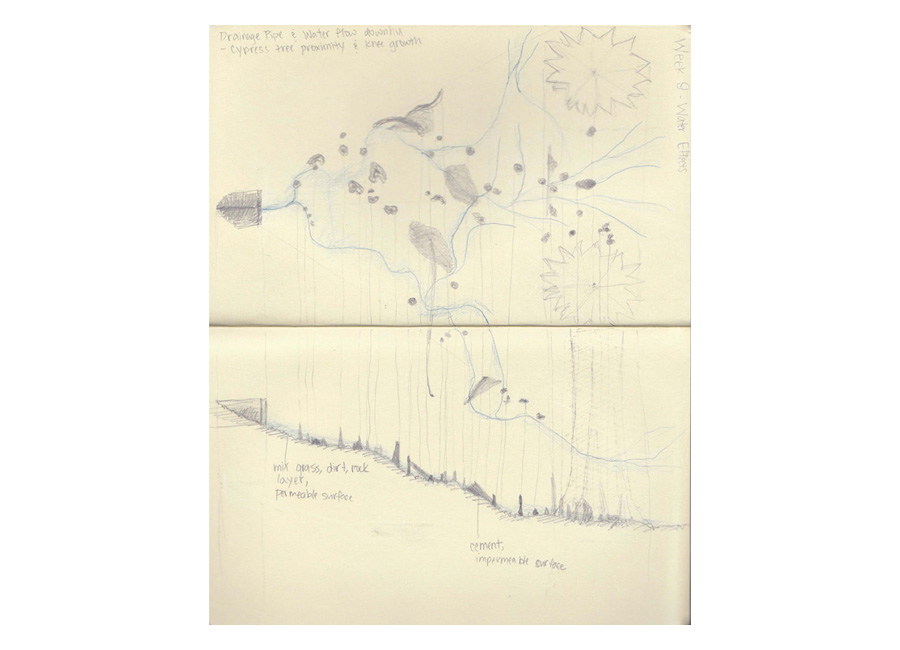 Drainage Pipe & Water flow downhill
- Cypress tree proximity & knee growth
Week 8 - Water Effects
mix grass, dirt, rock
layer,
permeable surface
cement,
impermeable surface